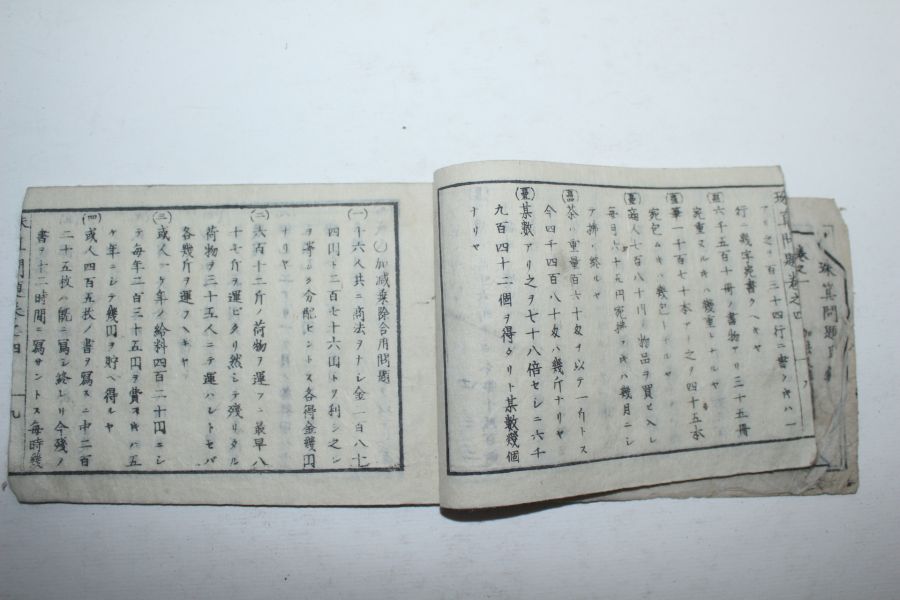 珠算問題
行ニ幾字宛書クヘキヤ
六千五百十冊ノ書物アリ三十五冊
宛重ヌルキハ幾重トナルヤ
筆一千百七十本アリ之ヲ四十五本
宛包ムキハ幾包トナルヤ
商人七百八十円ノ物品ヲ買ヒ入レ
毎月六十五円宛拂フキハ幾月ニシ
テ拂ヒ終ルヤ
茶ノ重量百六十匁ヲ以テ一斤トス
今四千四百八十匁ハ幾斤ナリヤ
某數アリ之ヲ七十八倍セシニ六千
九百四十二個ヲ得タリト某數幾個
ナリヤ
○加減乗除合用問題
(一)十六人共ニ商法ヲナシ金一百八十
四円ト二百七十六円トヲ利シ之レ
ヲ等シク分配セントス各得金幾円
ナリヤ
(二)六百十二斤ノ荷物ヲ運フニ最早八
十七斤ヲ運ビタリ然シテ殘リタル
荷物ヲ三十五人ニテ運ハントセバ
各幾斤ヲ運フヘキヤ
(三)或人一ケ年ノ給料四百二十円ニシ
テ毎年二百三十五円ヲ費スキハ五
ケ年ニシテ幾円ヲ貯ヘ得ルヤ
(四)或人四百五枚ノ書ヲ寫スニ中二百
二十五枚ハ既ニ寫シ終レリ今殘ノ
書ヲ十二時間ニ寫サントス毎時幾